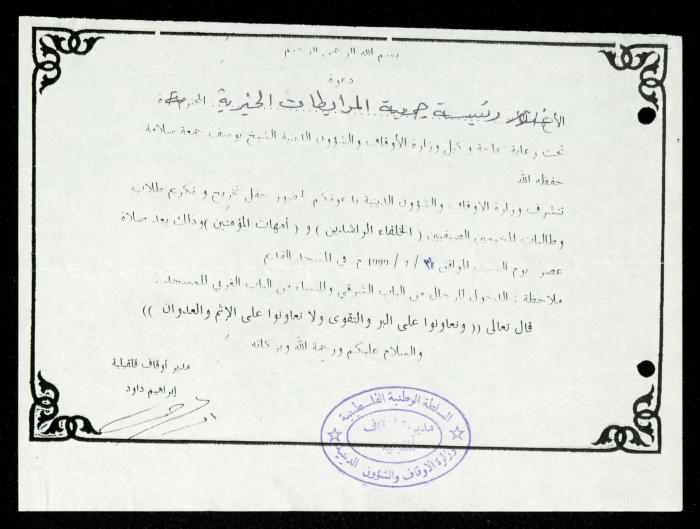 بسم الله الرحمن الرحيم
دعوة
الأخ رئيسة جمعية المرابطات الخيرية المحترمة
تحت رعاية سماحة وكيل وزارة الأوقاف والشؤون الدينية الشيخ يوسف جمعة سلامة
حفظه الله
تتشرف وزارة الاوقاف والشؤون الدينية بدعوتكم لحضور حفل تخريج و تكريم طلاب
وطالبات المخيمين الصيفيين ( الخلفاء الراشدين ) و ( أمهات المؤمنين ) وذلك بعد صلاة
عصر يوم السبت الموافق ٣١ / 7 / 1999 م في المسجد القديم
ملاحظة : الدخول للرجال من الباب الشرقي والنساء من الباب الغربي للمسجد .
قال تعالى (( وتعاونوا على البر والتقوى ولا تعاونوا على الإثم والعدوان ))
والسلام عليكم ورحمة الله وبركاته
مدير أوقاف قلقيلية
إبراهيم داود
السلطة الوطنية الفلسطينية
مديرية أوقاف
وزارة الأوقاف والشؤون الدينية